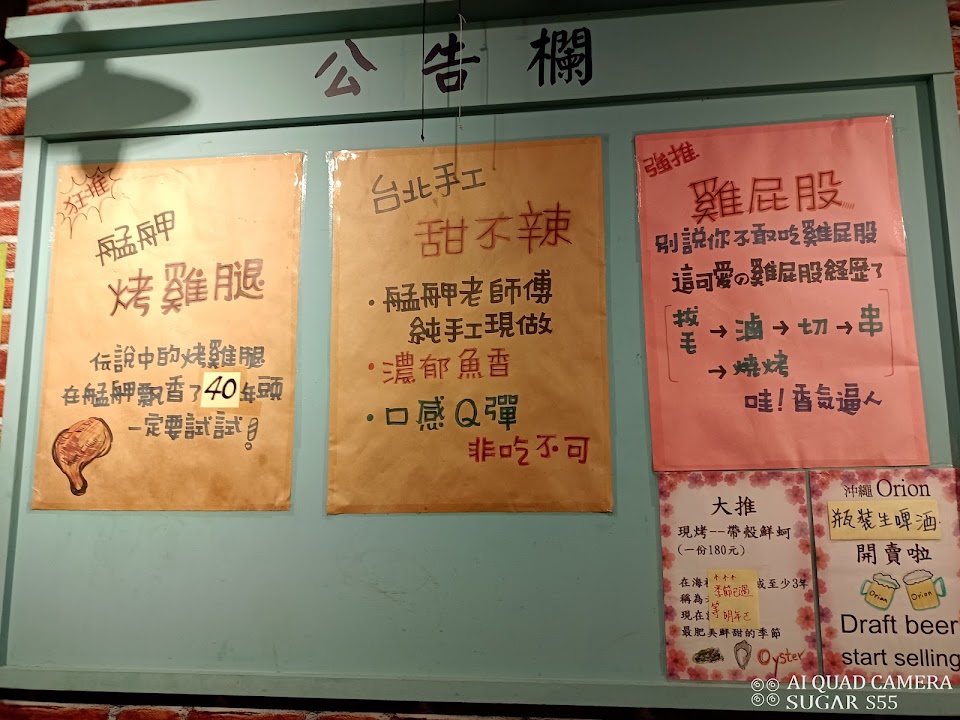 公告欄
狂推
艋舺
烤雞腿
伝說中的烤雞腿
在艋舺飄香了40年頭
一定要試試!
台北手工
甜不辣
・艋舺老師傅
純手工現做
・濃郁魚香
・口感Q彈
非吃不可
強推
雞屁股
別說你不敢吃雞屁股
這可愛の雞屁股経歷了
拔毛→滷→切→串
→燒烤
哇!香氣逼人
大推
現烤--帶殼鮮蚵
(一份180元)
在海 或至少3年
稱為
現在
季節已過
等明年
最肥美鮮甜的季節
Oyster
沖繩 Orion
瓶裝生啤酒
開賣啦
Orion
Orion
Draft beer
start selling
AI QUAD CAMERA
SUGAR S55